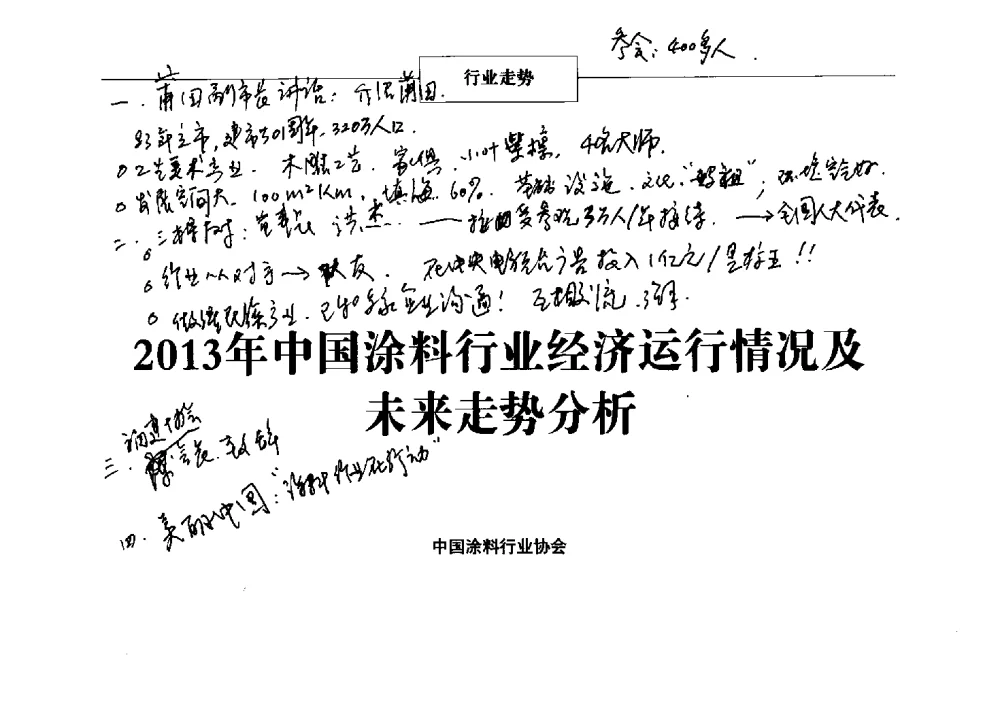 参会：400多人.
行业走势
一. 莆田副市长讲话：介绍莆田.
83年立市, 建市301周年, 320万人口.
工艺美术产业. 木雕工艺. 家俱. 小叶紫檀, 4名大师.
发展空间大. 100m²Km, 填海 60%. 基础设施. 文化："妈祖"；
二. 三棵树：董事长 洪杰. —— 接受参观 3万人/年接待. → 全国人大代表.
作业从对手 → 队友. 在中央电视台广告投入1亿元/
做强民族产业. 已和多家企业沟通！互相交流.
2013年中国涂料行业经济运行情况及
未来走势分析
三.
四. 美丽中国："涂料行业在行动"
中国涂料行业协会